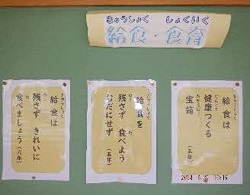 きゅうしょく しょくいく
給食・食育
給食は
健康つくる
宝箱
給食を
残さず 食べよう
むだにせず
給食は
残さず きれいに
食べましょう